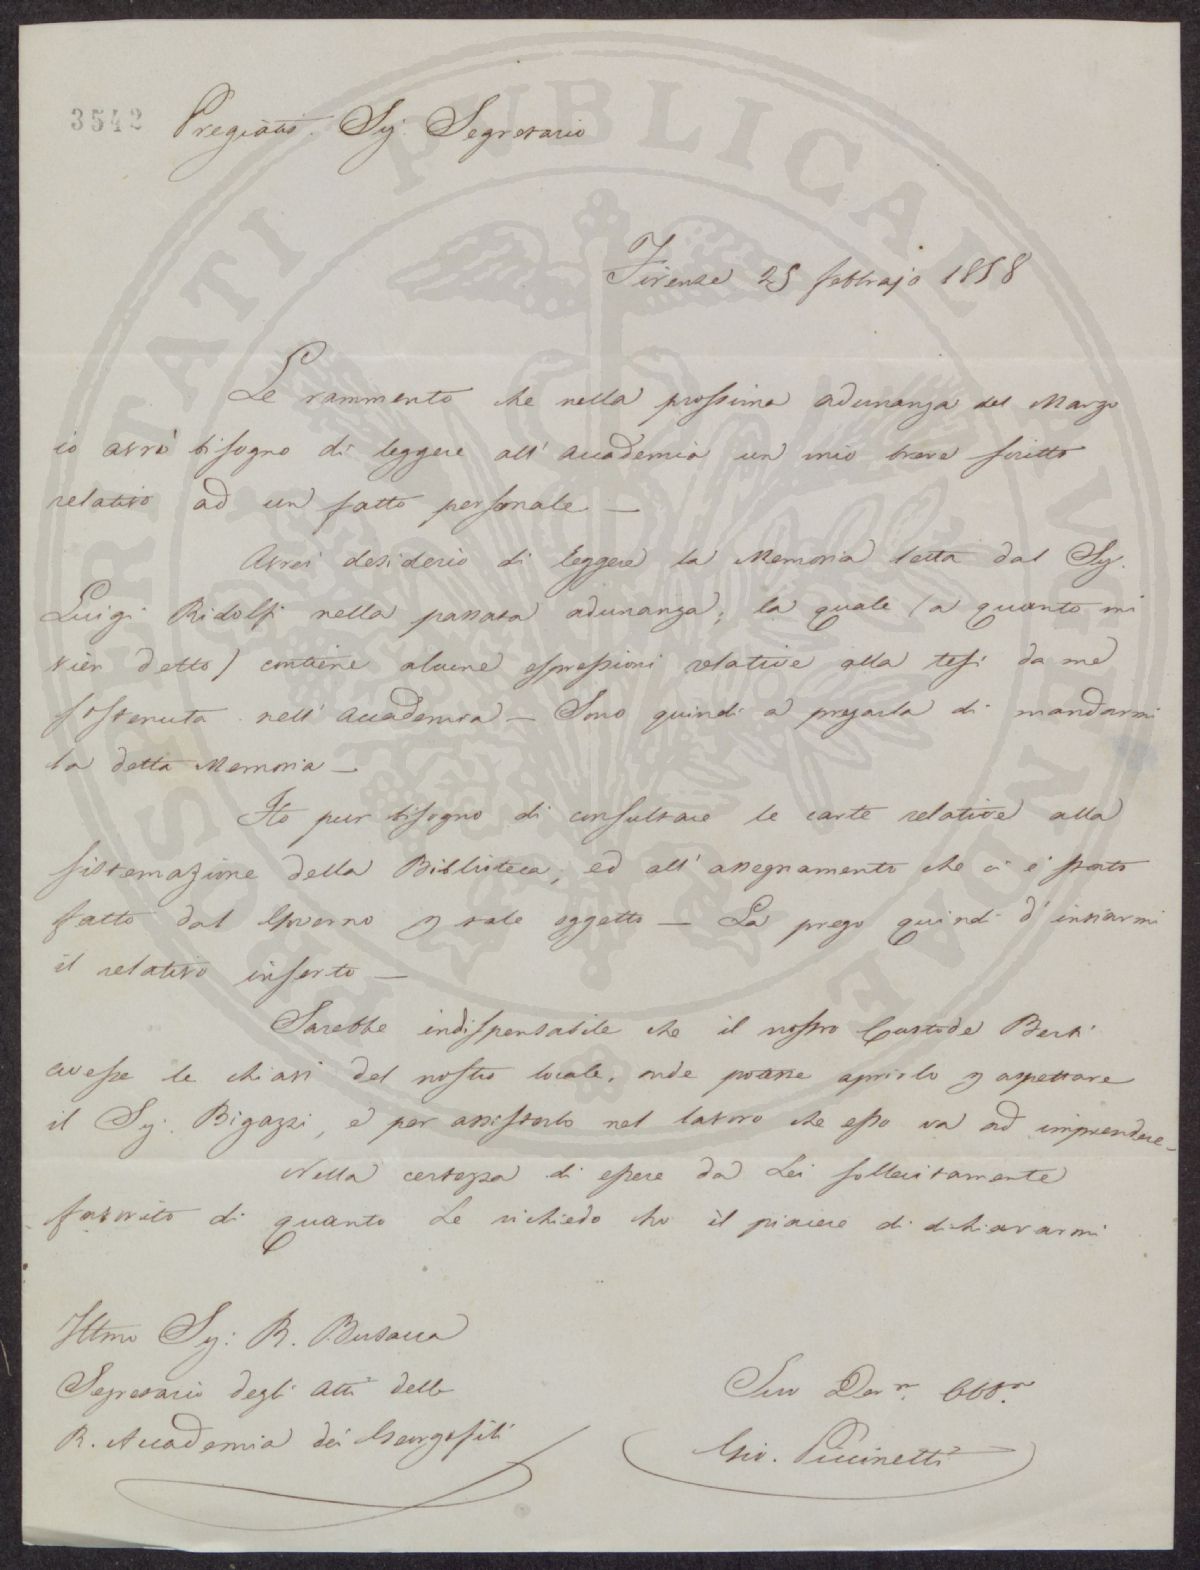 3542
Pregiatis. Sig. Segretario
Firenze 25 febbrajo 1858
Le rammento che nella prossima adunanza del Marzo
io avrò bisogno di leggere all' Accademia un mio breve scritto
relativo ad un fatto personale —
Avrei desiderio di leggere la Memoria letta dal Sig.
Luigi Ridolfi nella passata adunanza; la quale (a quanto mi
vien detto) contiene alcune espressioni relative alla tesi da me
sostenuta nell' Accademia — Sono quindi a pregarla di mandarmi
la detta Memoria —
Ho pur bisogno di consultare le carte relative alla
sistemazione della Biblioteca, ed all' assegnamento che ci è stato
fatto dal Governo p tale oggetto — La prego quindi d' inviarmi
il relativo inserto —
Sarebbe indispensabile che il nostro Custode Berti
avesse le chiavi del nostro locale, onde potesse aprirlo p aspettare
il Sig. Bigazzi, e per assisterlo nel lavoro che esso va ad imprendere —
Nella certezza di essere da Lei sollecitamente
favorito di quanto Le richiedo ho il piacere di dichiararmi
Illmo Sig: R. Busacca
Segretario degli Atti della
R. Accademia dei Georgofili
Suo Dev.mo Obb.mo
Gio. Puccinetti
POSTERITATI PUBLICAE